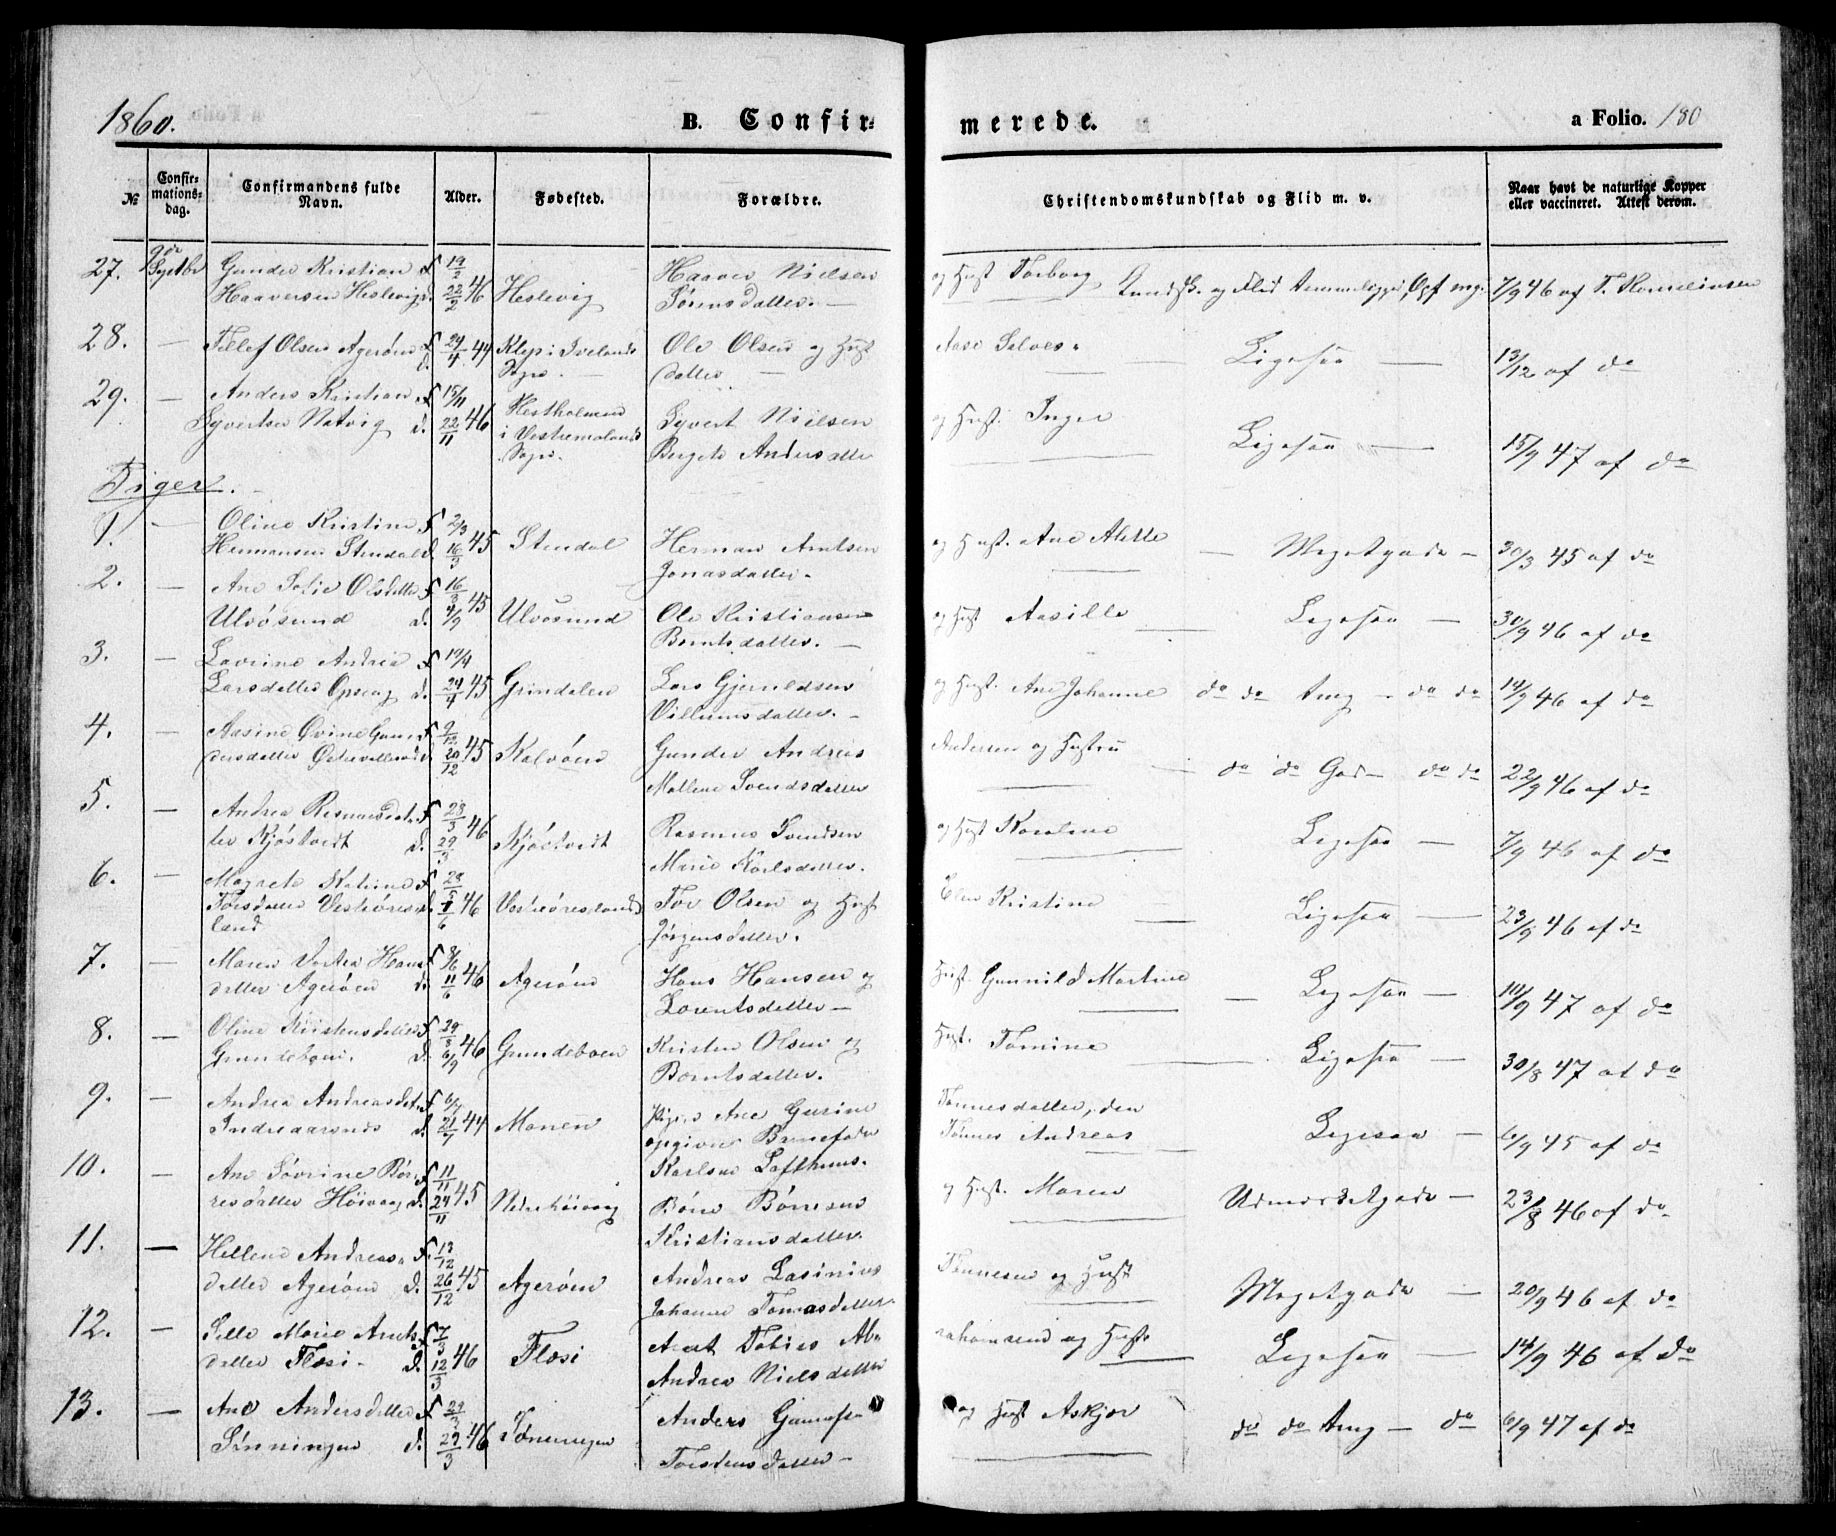 1860.
B. Confir- merede.
a Folio. 180
№ Confirmationsdag. Confirmandens fulde Navn. Alder. Fødested. Forældre. Christendomskundskab og Flid m. v. Naar havt de naturlige Kopper eller vaccineret. Attest derom.
27. Gunder Kristian f. 19/2 Haaver Nielsen og Hust Torborg
Haaversen Heslevig d. 22/2 46 Heslevig Tønnesdatter. — Kundsk. og Flid 7/9 46 af T.
28. — Tellef Olsen Agerøen f. 24/4 44 Klep i Ivelands Ole Olsen og Hust Aase Salves-
d. Sogn. — datter — Ligesaa — 13/12 af do
29. — Anders Kristian f. 15/11 Hestholmen Syvert Nielsen og Hust. Inger
Syvertsen Natvig d. 22/11 46 i Vestremolands Sogn. Bergete Andersdatter Ligesaa — 15/9 47 af do
Piger.
1. — Oline Kristine f. 2/3 Herman Arntsen og Hust. Ane Alette
Hermansen Stendal d. 16/3 45 Stendal Jonasdatter. — Megetgode — 30/3 45 af do
2. — Ane Sofie Olsdatter f. 16/3 Ole Kristiansen og Hust Aasille
Ulvøsund d. 4/9 45 Ulvøsund Berntsdatter. — Ligesaa — 30/9 46 af do
3. — Lovrine Andrea f. 19/4 Lars Gjeruldsen og Hust. Ane Johanne
Larsdatter d. 24/4 45 Grindalen Villumsdatter. — do do Amg — do do 14/9 46 af do
4. — Aasine Ovine Gun- f. 2/12 Gunder Andreas Andersen og Hustru
dersdatter d. 20/12 45 Kalvøen Mallene Svendsdatter — do do God — do do 22/9 46 af do
5. — Andrea Rasmusdat- f. 23/3 Rasmus Svendsen og Hust Karoline
ter Kjøstvedt d. 29/3 46 Kjøstvedt Marie Karlsdatter. Ligesaa — 7/9 46 af do
6. — Magrete Katrine f. 28/5 Tor Olsen og Hust Elen Kristine
Torsdatter Vestøres- d. 1/6 46 Jørgensdatter. Ligesaa — 23/9 46 af do
land
7. — Maren Dortea Hans- f. 8/6 Hans Hansen og Hust. Gunnild Martine
datter Agerøen d. 11/6 46 Agerøen Lorentsdatter — Ligesaa — 10/9 47 af do
8. — Oline Kristensdatter f. 29/8 Kristen Olsen og Hust. Tomine
Grundeboen. d. 6/9 46 Grundeboen Berntsdatter. Ligesaa — 30/8 47 af do
9. — Andrea Andreasdatter f. 6/7 Pigen Ane Gurine Tønnesdatter, den
Indreaarsnes d. 21/7 44 Monen opgivne Barnefader Tønnes Andreas Ligesaa — 6/9 45 af do
Karlsen Lofthuus.
10. — Ane Sovrine Bør- f. 11/11 Børe Børresen og Hust. Maren
resdatter Høivaag d. 24/11 45 Nedrehøivaag Kristiansdatter. Udmerketgode — 23/8 46 af do
11. — Hellene Andreas- f. 13/12 Andreas Lasinius Tønnesen og Hust
datter Agerøen d. 26/12 45 Agerøen Johanne Tomasdatter Megetgode — 20/9 46 af do
12. — Sille Marie Arnts- f. 7/3 Arnt Tobies Ab- rahamsen og Hust.
datter Fløsi. d. 12/3 46 Flosi Andrea Nielsdatter — Ligesaa — 14/9 46 af do
13. — Ane Andersdatter f. 22/3 Anders og Hust Askjær
Sønningen d. 29/3 46 Sønningen Torstensdatter — do do Amg — do 6/9 47 af do